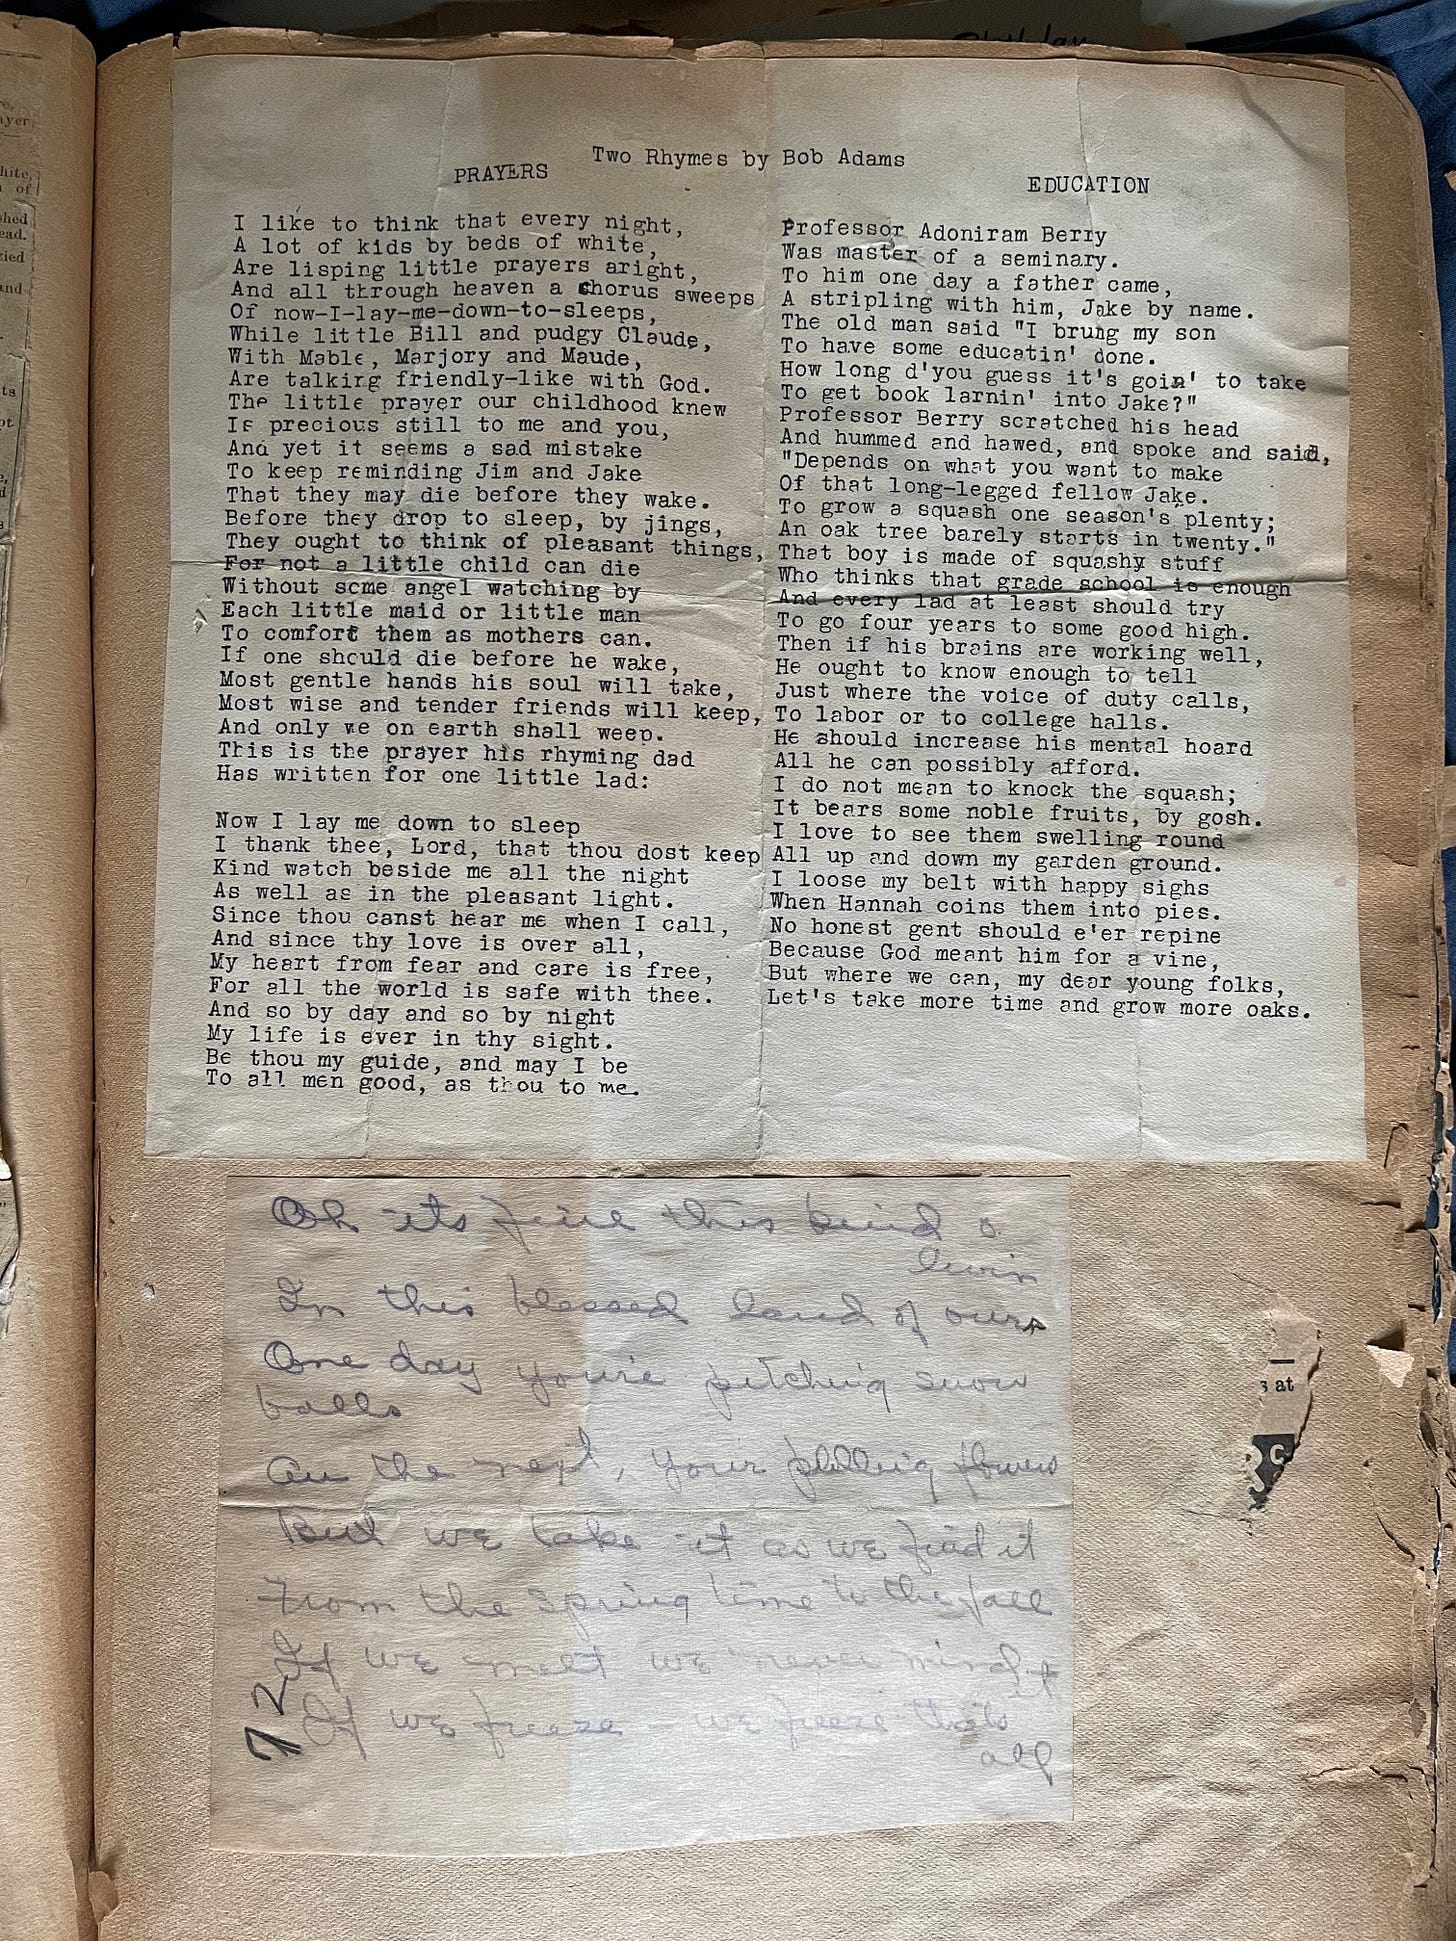 Two Rhymes by Bob Adams
PRAYERS
I like to think that every night,
A lot of kids by beds of white,
Are lisping little prayers aright,
And all through heaven a chorus sweeps
Of now-I-lay-me-down-to-sleeps,
While little Bill and pudgy Claude,
With Mable, Marjory and Maude,
Are talking friendly-like with God.
The little prayer our childhood knew
Is precious still to me and you,
And yet it seems a sad mistake
To keep reminding Jim and Jake
That they may die before they wake.
Before they drop to sleep, by jings,
They ought to think of pleasant things,
For not a little child can die
Without some angel watching by
Each little maid or little man
To comfort them as mothers can.
If one should die before he wake,
Most gentle hands his soul will take,
Most wise and tender friends will keep,
And only we on earth shall weep.
This is the prayer his rhyming dad
Has written for one little lad:
Now I lay me down to sleep
I thank thee, Lord, that thou dost keep
Kind watch beside me all the night
As well as in the pleasant light.
Since thou canst hear me when I call,
And since thy love is over all,
My heart from fear and care is free,
For all the world is safe with thee.
And so by day and so by night
My life is ever in thy sight.
Be thou my guide, and may I be
To all men good, as thou to me.
EDUCATION
Professor Adoniram Berry
Was master of a seminary.
To him one day a father came,
A stripling with him, Jake by name.
The old man said "I brung my son
To have some educatin' done.
How long d'you guess it's goin' to take
To get book larnin' into Jake?"
Professor Berry scratched his head
And hummed and hawed, and spoke and said,
"Depends on what you want to make
Of that long-legged fellow Jake.
To grow a squash one season's plenty;
An oak tree barely starts in twenty."
That boy is made of squashy stuff
Who thinks that grade school is enough
And every lad at least should try
To go four years to some good high.
Then if his brains are working well,
He ought to know enough to tell
Just where the voice of duty calls,
To labor or to college halls.
He should increase his mental hoard
All he can possibly afford.
I do not mean to knock the squash;
It bears some noble fruits, by gosh.
I love to see them swelling round
All up and down my garden ground.
I loose my belt with happy sighs
When Hannah coins them into pies.
No honest gent should e'er repine
Because God meant him for a vine,
But where we can, my dear young folks,
Let's take more time and grow more oaks.
Oh its fine this kind o
livin
In this blessed land of ours
One day you're pitching snow
balls
An the next, your flowers
But we take it as we find it
From the spring time to the fall
If we melt we never mind it
If we freeze - we freeze thats
all
72
s at